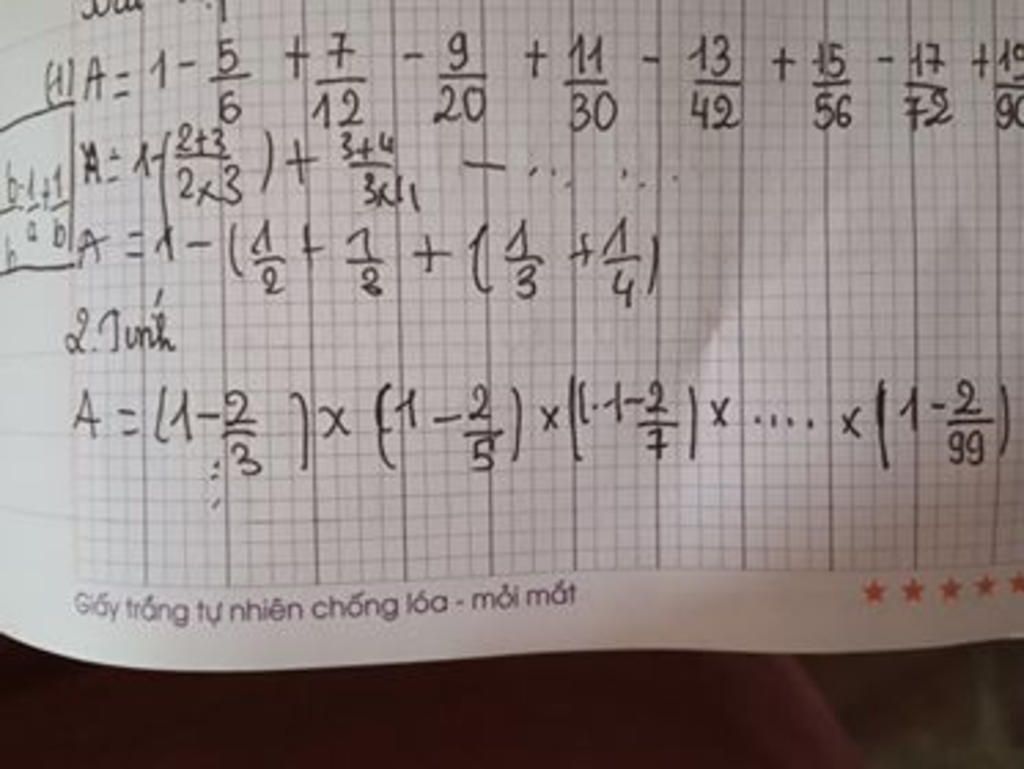 (1) A = 1 - 5/6 + 7/12 - 9/20 + 11/30 - 13/42 + 15/56 - 17/72 + 19/90
A = 1 - (2+3/2x3) + 3+4/3x4 - ... ...
A = 1 - (1/2 + 1/3 + (1/3 + 1/4)
2. Tính
A = (1 - 2/3) x (1 - 2/5) x (1 - 2/7) x .... x (1 - 2/99)
Giấy trắng tự nhiên chống lóa - mỏi mắt